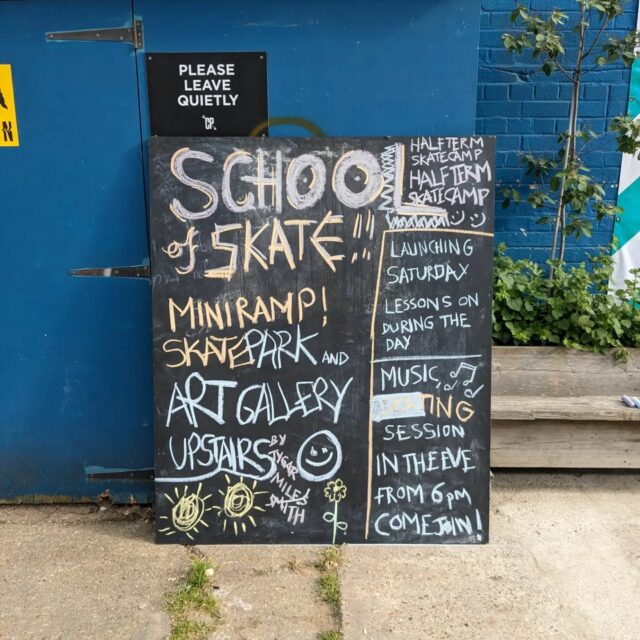 PLEASE
LEAVE
QUIETLY
N
SCHOOL
of SKATE!!
MINIRAMP!
SKATEPARK AND
ART GALLERY
UPSTAIRS
BY
MILES
SMITH
HALFTERM
SKATECAMP
HALFTERM
SKATECAMP
LAUNCHING
SATURDAY
LESSONS ON
DURING THE
DAY
MUSIC,
SESSION
IN THE EVE
FROM 6pm
COME JOIN!